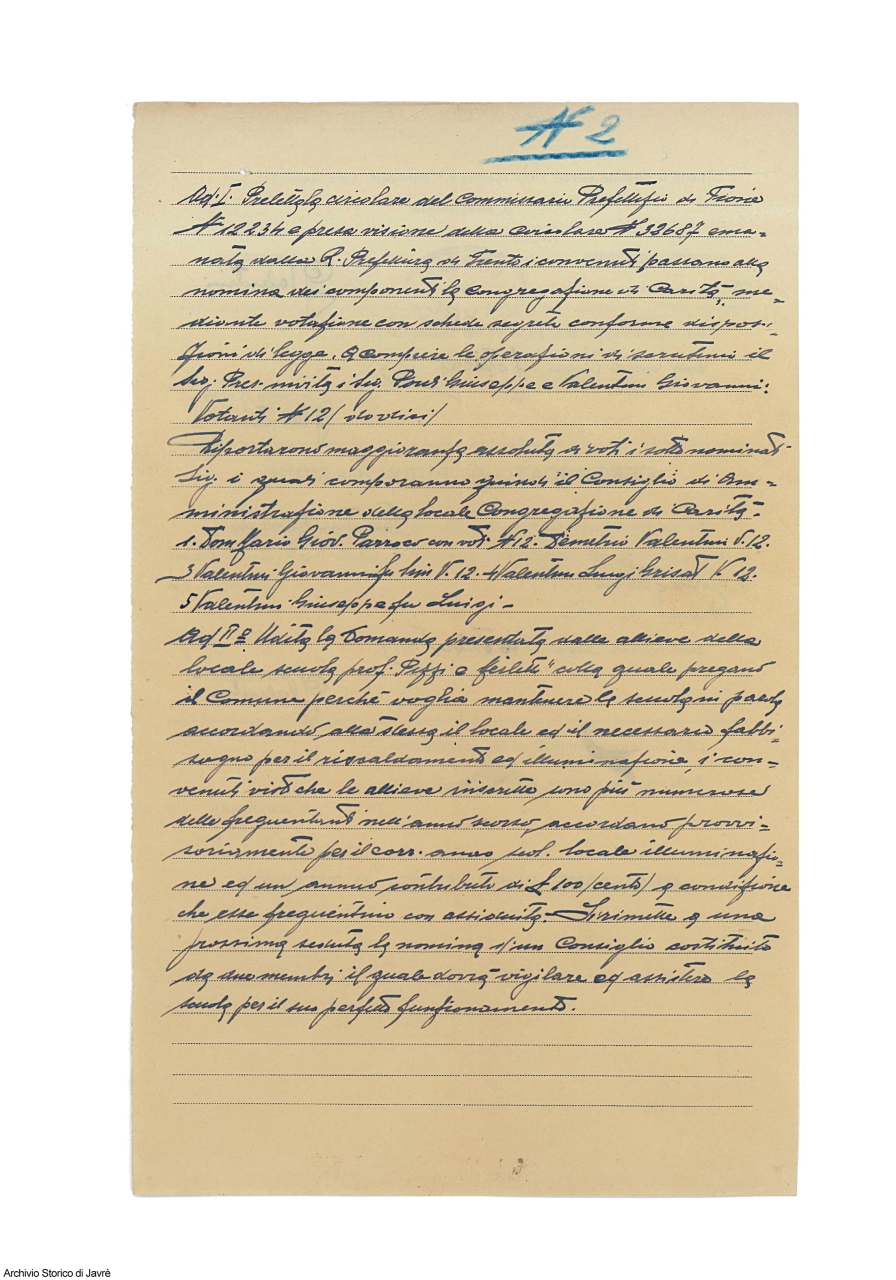 N 2
Ad. I. Preletta la circolare del Commissario Prefettizio di Tione
N 12234 e presa visione della circolare N 32687 ema-
nata dalla R. Prefettura di Trento i convenuti passano alla
nomina dei componenti la Congregazione di Carità, me-
diante votazione con schede segrete conforme disposi-
zioni di legge. A compiere le operazioni di scrutinio il
Sig. Pres. invita i Sig. Giuseppe e Valentini Giovanni:
Votanti N 12/ dodici/
Riportarono maggioranza assoluta di voti i sotto nominati
Sig. i quali comporanno quindi il Consiglio di Am-
ministrazione della locale Congregazione di Carità -
1. Don Mario Giov. Parroco con voti N 12. Demetrio Valentini V. 12.
3 Valentini Giovanni fu V. 12. 4 Valentini Luigi V. 12.
5 Valentini Giuseppe fu Luigi -
Ad II° Udita la Domanda presentata dalle allieve della
locale scuola prof. Pizzi e filetti" colla quale pregano
il Comune perchè voglia mantenere la scuola in parola
accordando alla stessa il locale ed il necessario fabbi-
sogno per il riscaldamento ed illuminazione, i con-
venuti visto che le allieve inscritte sono più numerose
delle frequentanti nell'anno scorso, accordano provvi-
soriamente per il corr. anno scol. locale illuminazio-
ne ed un annuo contributo di £ 100/cento/ a condizione
che esse frequentino con assiduità. - Si rimette a una
prossima seduta la nomina d'un Consiglio costituito
da due membri il quale dovrà vigilare ed assistere la
scuola per il suo perfetto funzionamento.
Archivio Storico di Javrè